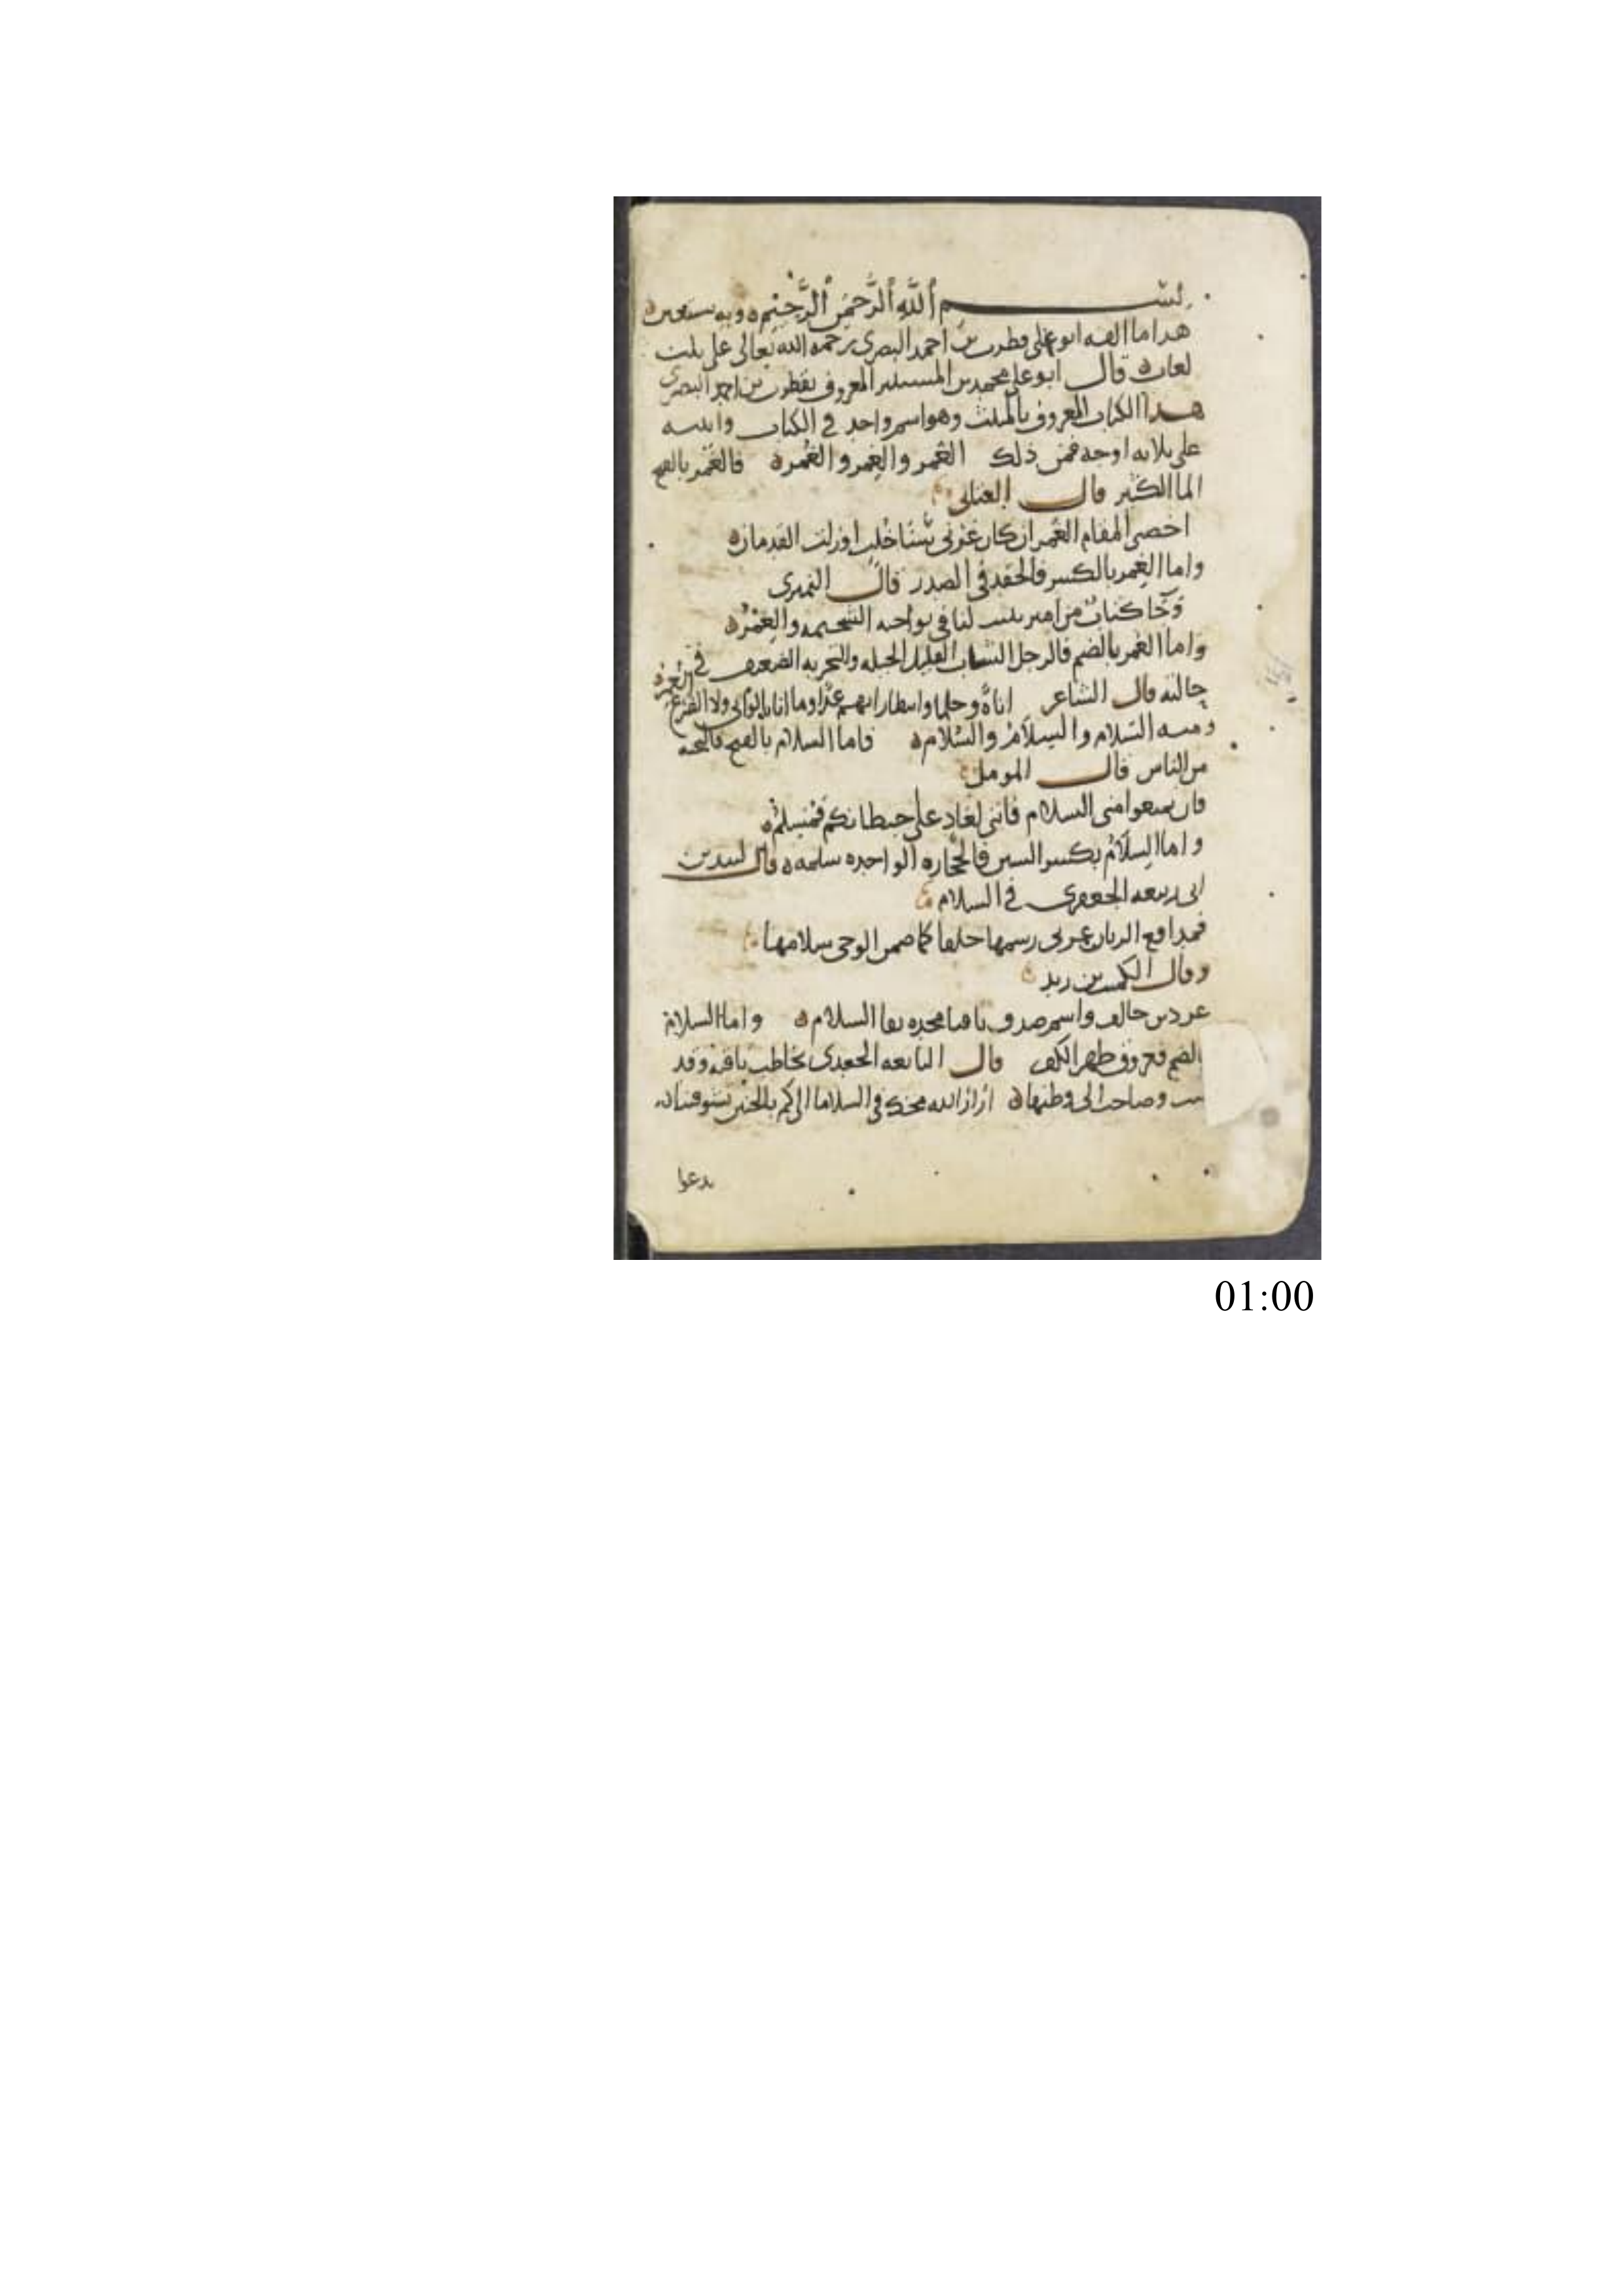 بسم ألله ألرَّحمَن ألرَّحِيم وبه نستعين
هذا ما الفه ابو على قطرب بن احمد البصرى رحمه الله تعالى على ثلث
لغات قال ابو على محمد بن المستنير المعروف بقطرب بن احمد البصرى
هذا الكتاب المعروف بالمثلث وهو اسم واحد في الكتاب
على ثلاثه اوجه فمن ذلك الغَمر والغِمر والغُمر فالغَمر بالفتح
الما الكثير قال
المقام الغمر ان كان غرنى خلب او زلت القدمان
واما الغِمر بالكسر فالحقد في الصدر قال النميرى
كتاب من امير لنا في
واما الغمر بالضم فالرجل الشاب القليل الحيله والتجربه الضعيف في
حالته قال الشاعر اناةً وحلما وانتظارا بهم غدًا وما انا بالوانى ولا الضرع الغمر
ومنه السَّلام والسِلَامُ والسُّلام فاما السلام بالفتح فالتحيه
من الناس قال المومل
فان تمنعوا منى السلام فاننى لغاد على حيطانكم فمسلم
واما السِلَامُ بكسر السين فالحجاره الواحده سلمه قال لبيد بن
ابى ربيعه الجعفرى في السلام
فمدافع الريان عرى رسمها خلقا كما ضمن الوحى سلامها
وقال الكميت بن زيد
واما السلامُ
الضم فعروق ظهر الكف قال النابغه الجعدى يخاطب ناقته وقد
وصاحب الى وطنها السلاما الى كم بالحنين تشوقينا
يدعوا
01:00